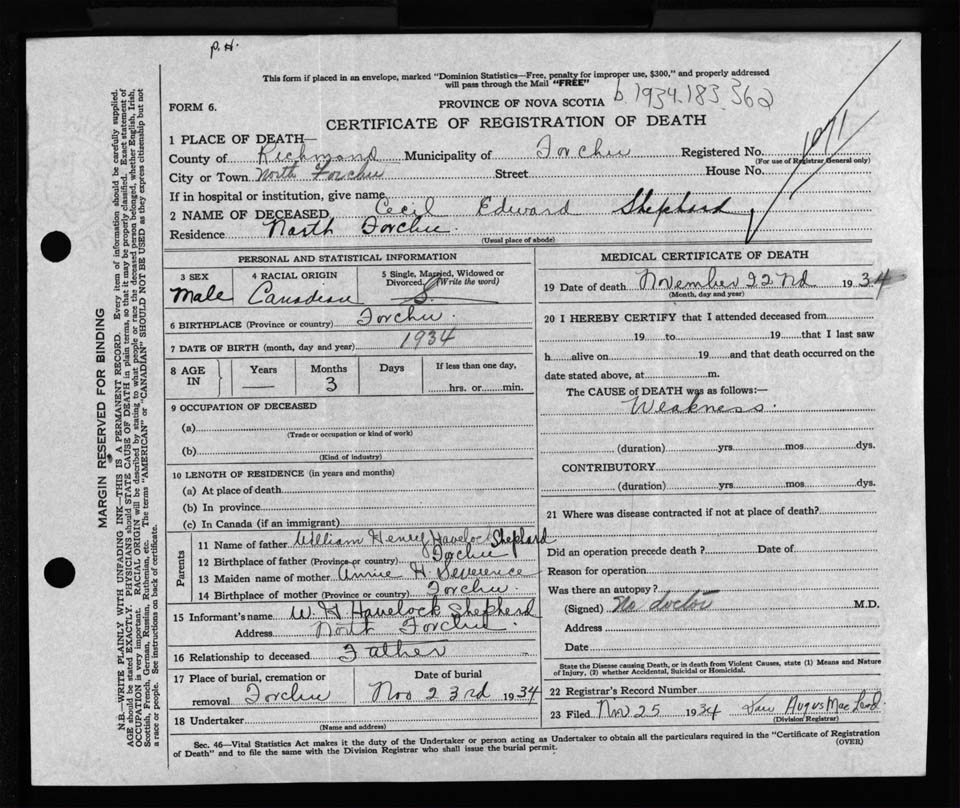 P. H.
This form if placed in an envelope, marked "Dominion Statistics—Free, penalty for improper use, $300," and properly addressed
will pass through the Mail "FREE"
FORM 6.
PROVINCE OF NOVA SCOTIA
b.1934.183.362
CERTIFICATE OF REGISTRATION OF DEATH
1 PLACE OF DEATH—
County of Richmond Municipality of Forchu Registered No.
(For use of Registrar General only)
1071
City or Town North Forchu Street House No.
If in hospital or institution, give name
2 NAME OF DECEASED Cecil Edward Shephard
Residence North Forchu.
(Usual place of abode)
PERSONAL AND STATISTICAL INFORMATION
3 SEX 4 RACIAL ORIGIN 5 Single, Married, Widowed or
Divorced (Write the word)
Male Canadian S.
6 BIRTHPLACE (Province or country) Forchu.
7 DATE OF BIRTH (month, day and year) 1934
8 AGE IN Years Months Days If less than one day,
— 3 hrs. or min.
9 OCCUPATION OF DECEASED
(a)
(Trade or occupation or kind of work)
(b)
(Kind of industry)
10 LENGTH OF RESIDENCE (in years and months)
(a) At place of death
(b) In province
(c) In Canada (if an immigrant)
Parents
11 Name of father William Henry Havelock Shephard
12 Birthplace of father (Province or country) Forchu
13 Maiden name of mother Annie H. Severence
14 Birthplace of mother (Province or country) Forchu.
15 Informant's name W. H. Havelock Shepherd
Address North Forchu.
16 Relationship to deceased Father
17 Place of burial, cremation or Date of burial
removal Forchu Nov 23rd 1934
18 Undertaker
(Name and address)
MEDICAL CERTIFICATE OF DEATH
19 Date of death November 22nd 1934
(Month, day and year)
20 I HEREBY CERTIFY that I attended deceased from
19 to 19 that I last saw
h alive on 19 and that death occurred on the
date stated above, at m.
The CAUSE of DEATH was as follows:—
Weakness.
(duration) yrs. mos. dys.
CONTRIBUTORY
(duration) yrs. mos. dys.
21 Where was disease contracted if not at place of death?
Did an operation precede death? Date of
Reason for operation
Was there an autopsy?
(Signed) No doctor M.D.
Address
Date
State the Disease causing Death, or in death from Violent Causes, state (1) Means and Nature
of Injury, (2) whether Accidental, Suicidal or Homicidal.
22 Registrar's Record Number
23 Filed Nov 25 1934 Angus MacLeod
(Division Registrar)
Sec. 46—Vital Statistics Act makes it the duty of the Undertaker or person acting as Undertaker to obtain all the particulars required in the "Certificate of Registration
of Death" and to file the same with the Division Registrar who shall issue the burial permit.
(OVER)
MARGIN RESERVED FOR BINDING
N.B.—WRITE PLAINLY WITH UNFADING INK—THIS IS A PERMANENT RECORD. Every item of information should be carefully supplied.
AGE should be stated EXACTLY. PHYSICIANS should STATE CAUSE OF DEATH in plain terms, so that it may be properly classified. Exact statement of
OCCUPATION is very important. RACIAL ORIGIN will be described by stating to what people or race the deceased person belonged, whether English, Irish,
Scottish, French, German, Russian, Ruthenian, etc. The terms "AMERICAN" or "CANADIAN" SHOULD NOT BE USED as they express citizenship but not
a race or people. See instructions on back of certificate.